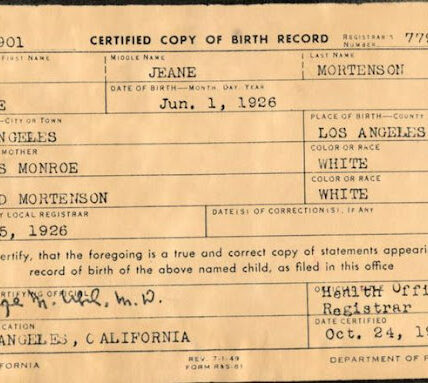 901 CERTIFIED COPY OF BIRTH RECORD REGISTRAR'S NUMBER 779
FIRST NAME MIDDLE NAME LAST NAME
JEANE MORTENSON
DATE OF BIRTH—MONTH, DAY, YEAR
E Jun. 1, 1926
—CITY OR TOWN PLACE OF BIRTH—COUNTY
NGELES LOS ANGELES
MOTHER COLOR OR RACE
S MONROE WHITE
COLOR OR RACE
D MORTENSON WHITE
BY LOCAL REGISTRAR DATE(S) OF CORRECTION(S), IF ANY
5, 1926
certify, that the foregoing is a true and correct copy of statements appearin
record of birth of the above named child, as filed in this office
CERTIFYING OFFICIAL Health Offi
M. D. Registrar
CATION DATE CERTIFIED
ANGELES, CALIFORNIA Oct. 24, 19
IFORNIA REV. 7-1-49 DEPARTMENT OF P
FORM R&S-61